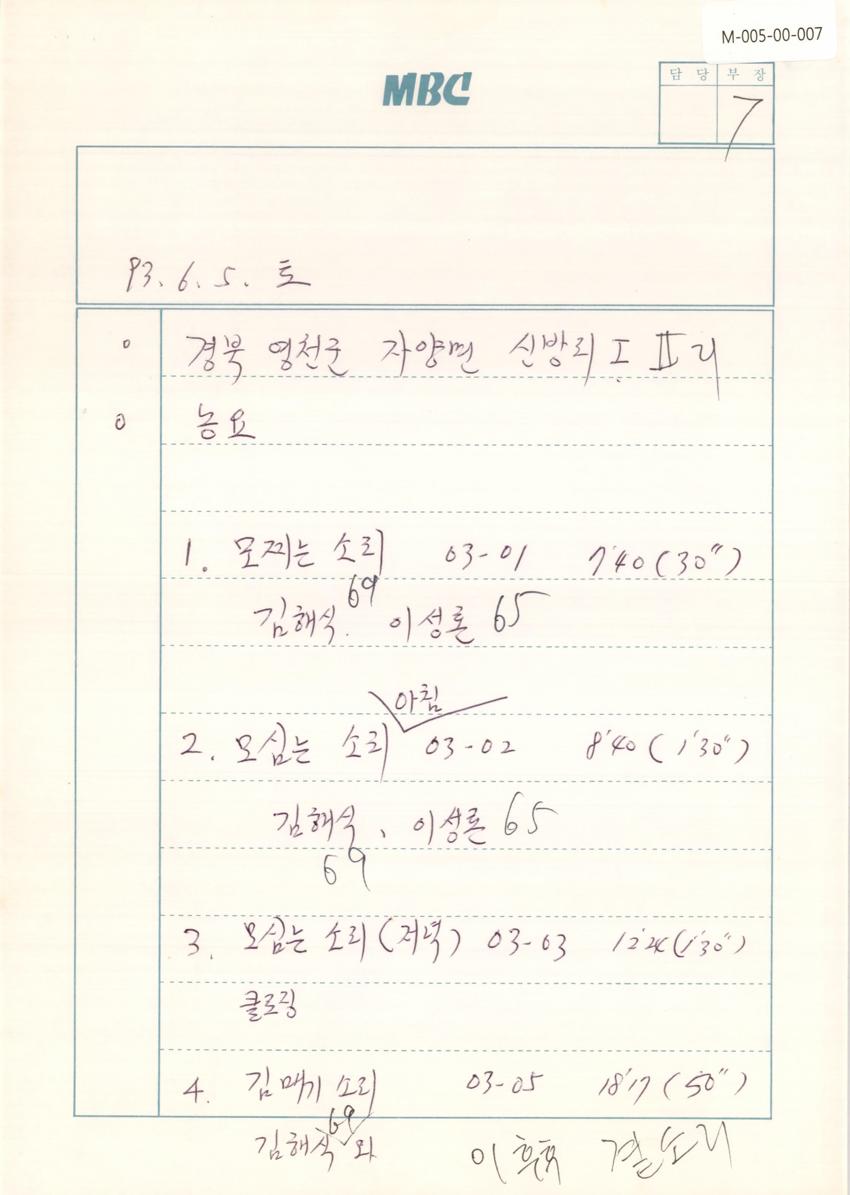 M-005-00-007
MBC
담당 부장
7
93. 6. 5. 토
경북 영천군 자양면 신방리 I. II리
농요
1. 모찌는 소리 03-01 7'40 (30")
김해식 69. 이성룐 65
아침
2. 모심는 소리 03-02 8'40 (1'30")
김해식, 이성룐 65
69
3. 모심는 소리 (저녁) 03-03 12'24 (1'30")
클로징
4. 김매기 소리 03-05 18'17 (50")
69
김해식와 이 소리